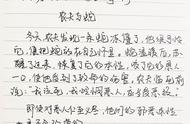 农夫与蛇
冬天,农夫发现一条蛇冻僵了,他很可怜
它,便把蛇放在自己怀里。蛇温暖后,
醒了过来,恢复了它的本性,咬了它的恩人一
口,使他受到了致命的伤害。农夫临死前
说:“我该死,我怜悯恶人,应该受恶报。”
即使对恶人仁至义尽,他们的邪恶本性